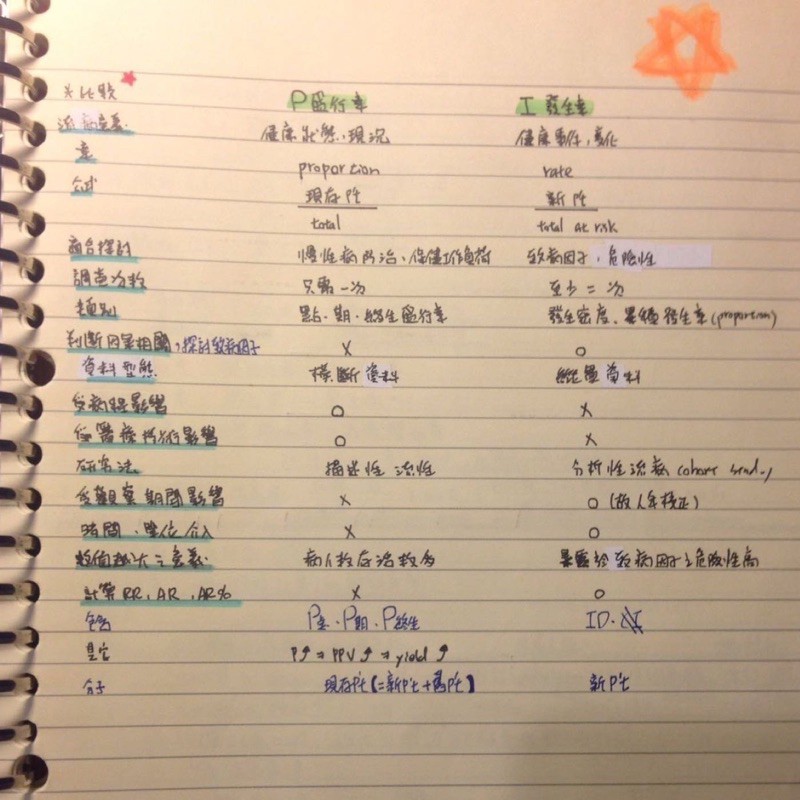 *比較 P盛行率 I 發生率
流病意義 健康狀態、現況 健康事件,變化
意 proportion rate
公式 現存pt 新pt
total total at risk
適合探討 慢性病防治、保健工作負荷 致病因子,危險性
調查次數 只需一次 至少二次
類別 點、期、終生盛行率 發生密度、累積發生率(proportion)
判斷因果相關,探討致病因子 X O
資料型態 橫斷資料 縱貫資料
受病程影響 O X
受醫療技術影響 O X
研究法 描述性流 分析性流病 cohort
受觀察期間影響 X O (故人年校正)
時間、單位介入 X O
數值越大之意義 病人數存活數多 暴露於致病因子之危險性高
計算RR、AR、AR% X O
包含 P點、P期、P終生 ID、
P↑⇒PPV↑⇒yield↑
分子 現存pt(=新pt+舊pt) 新pt